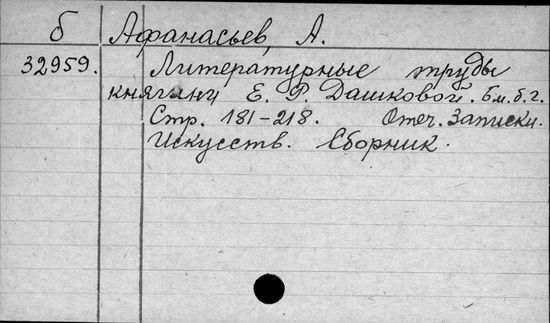 б Афанасьев, А.
32959. Литературные труды
княгини Е. Р. Дашковой. Б.м.б.г.
Стр. 181-218. Отеч. Записки.
Искусств. Сборник.